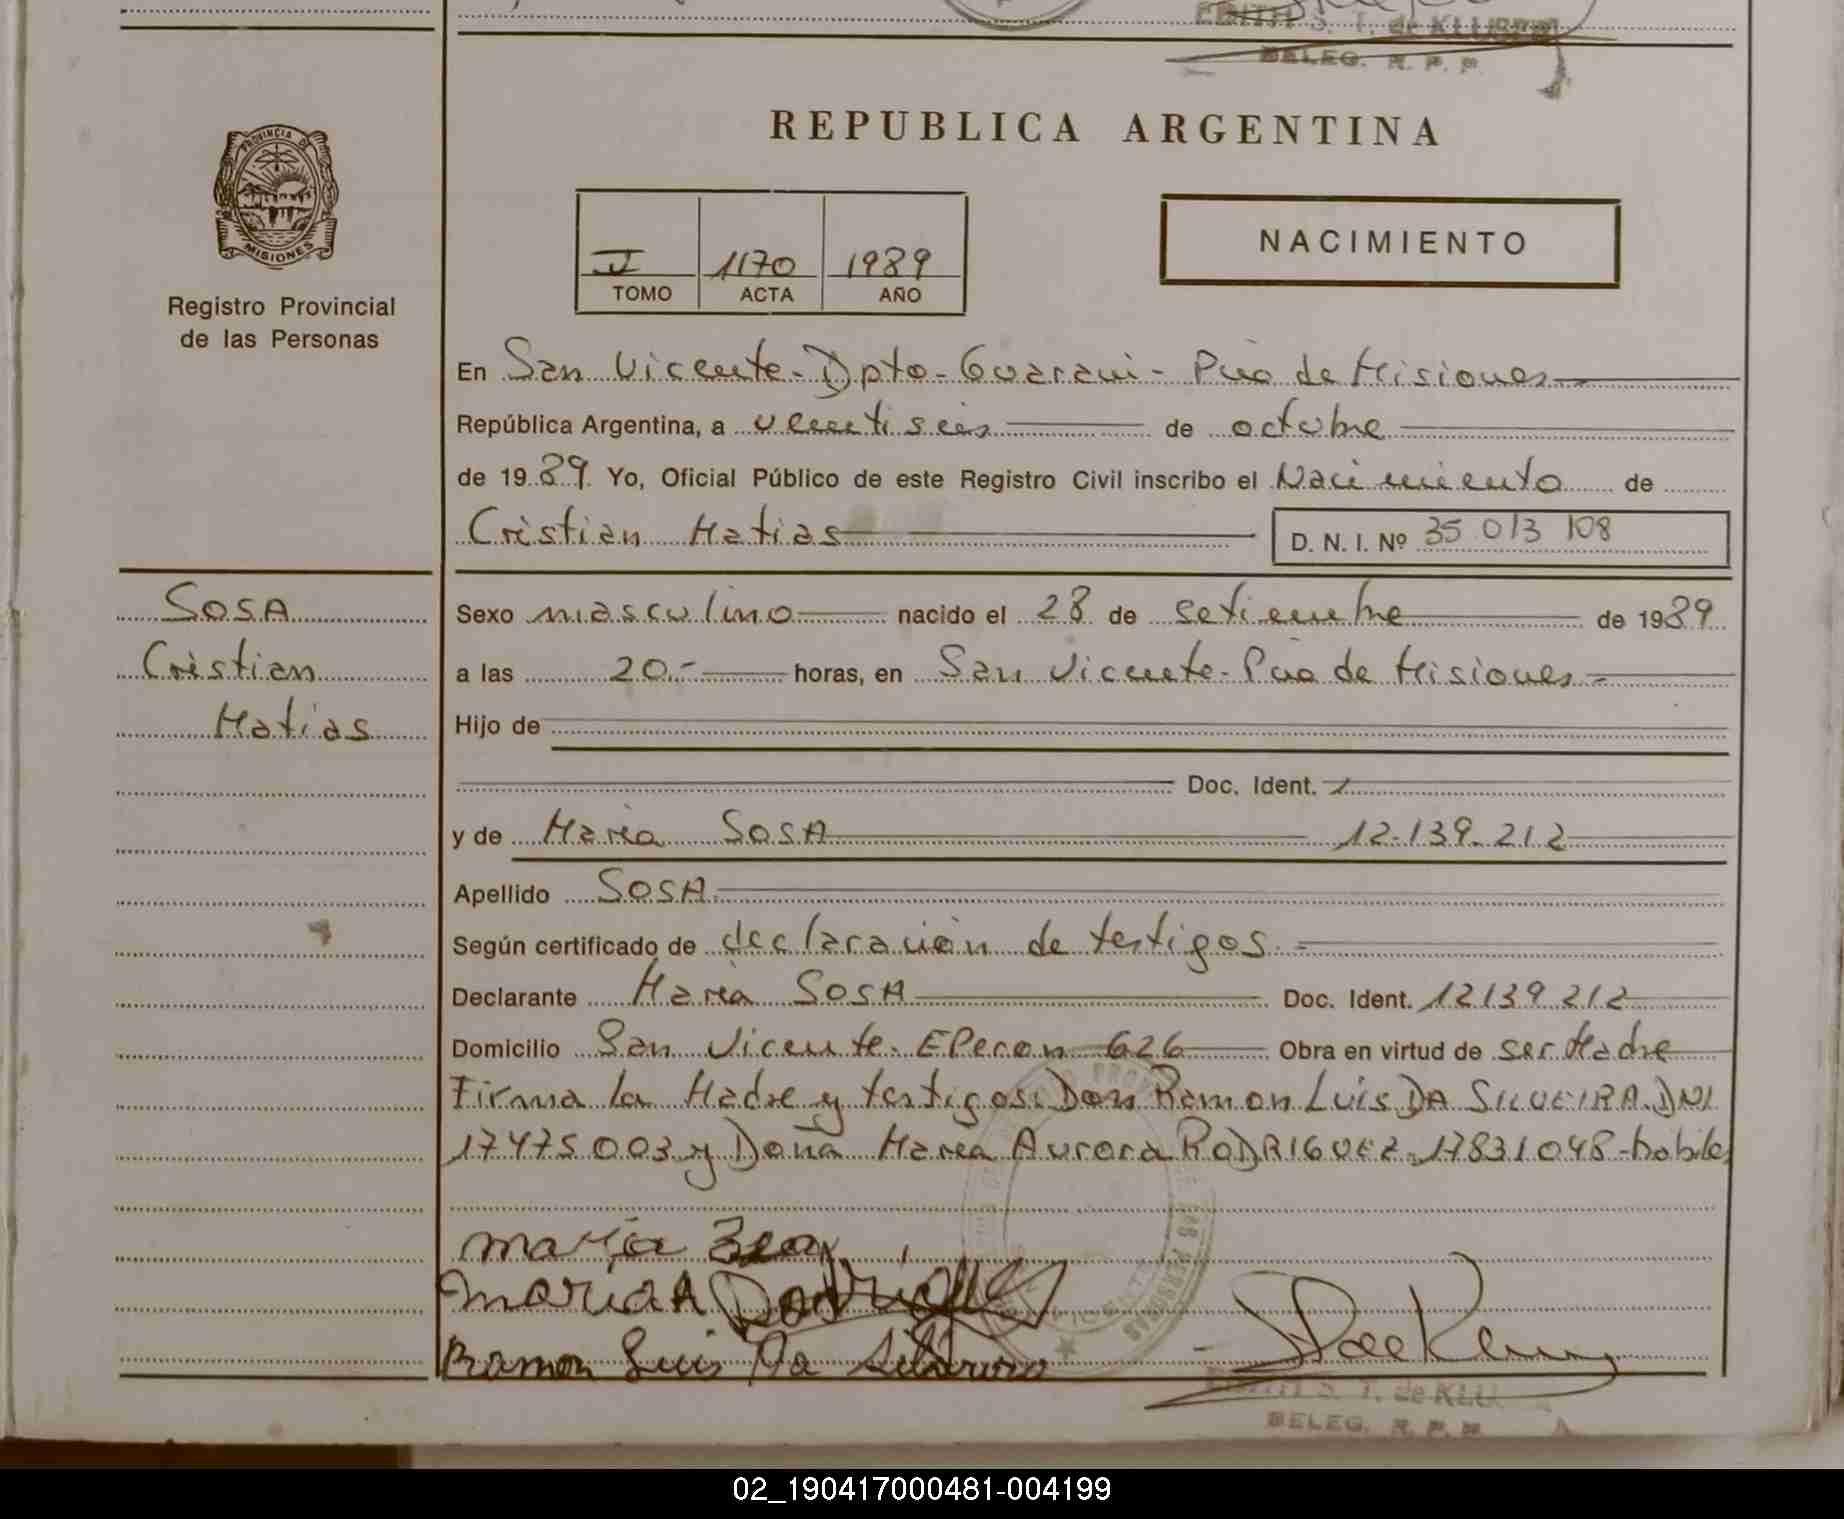 EDITH S. T. de KLU
DELEG. R. P. P.
REPUBLICA ARGENTINA
PROVINCIA DE
MISIONES
NACIMIENTO
1170 1989
TOMO ACTA AÑO
Registro Provincial
de las Personas
En San Vicente - Dpto - Guarani - Pcia de Misiones
República Argentina, a veintiseis de octubre
de 1989 Yo, Oficial Público de este Registro Civil inscribo el Nacimiento de
Cristian Matias D. N. I. Nº 35 013 108
SOSA
Cristian
Matias
Sexo masculino nacido el 28 de setiembre de 1989
a las 20.- horas, en San Vicente - Pcia de Misiones -
Hijo de
Doc. Ident.
y de Maria SOSA 12.139.212
Apellido SOSA
Según certificado de declaración de testigos.
Declarante Maria SOSA Doc. Ident. 12139212
Domicilio San Vicente. EPeron 626 Obra en virtud de ser Madre
Firma la Madre y testigos: Don Ramon Luis DA SILVEIRA. DNI
17475003 y Doña Maria Aurora RODRIGUEZ. 17831048 - habiles
maria
maria A Rodriguez
Ramon Luis Da Silveira
EDITH S. T. de KLU
DELEG. R. P. P.
02_190417000481-004199